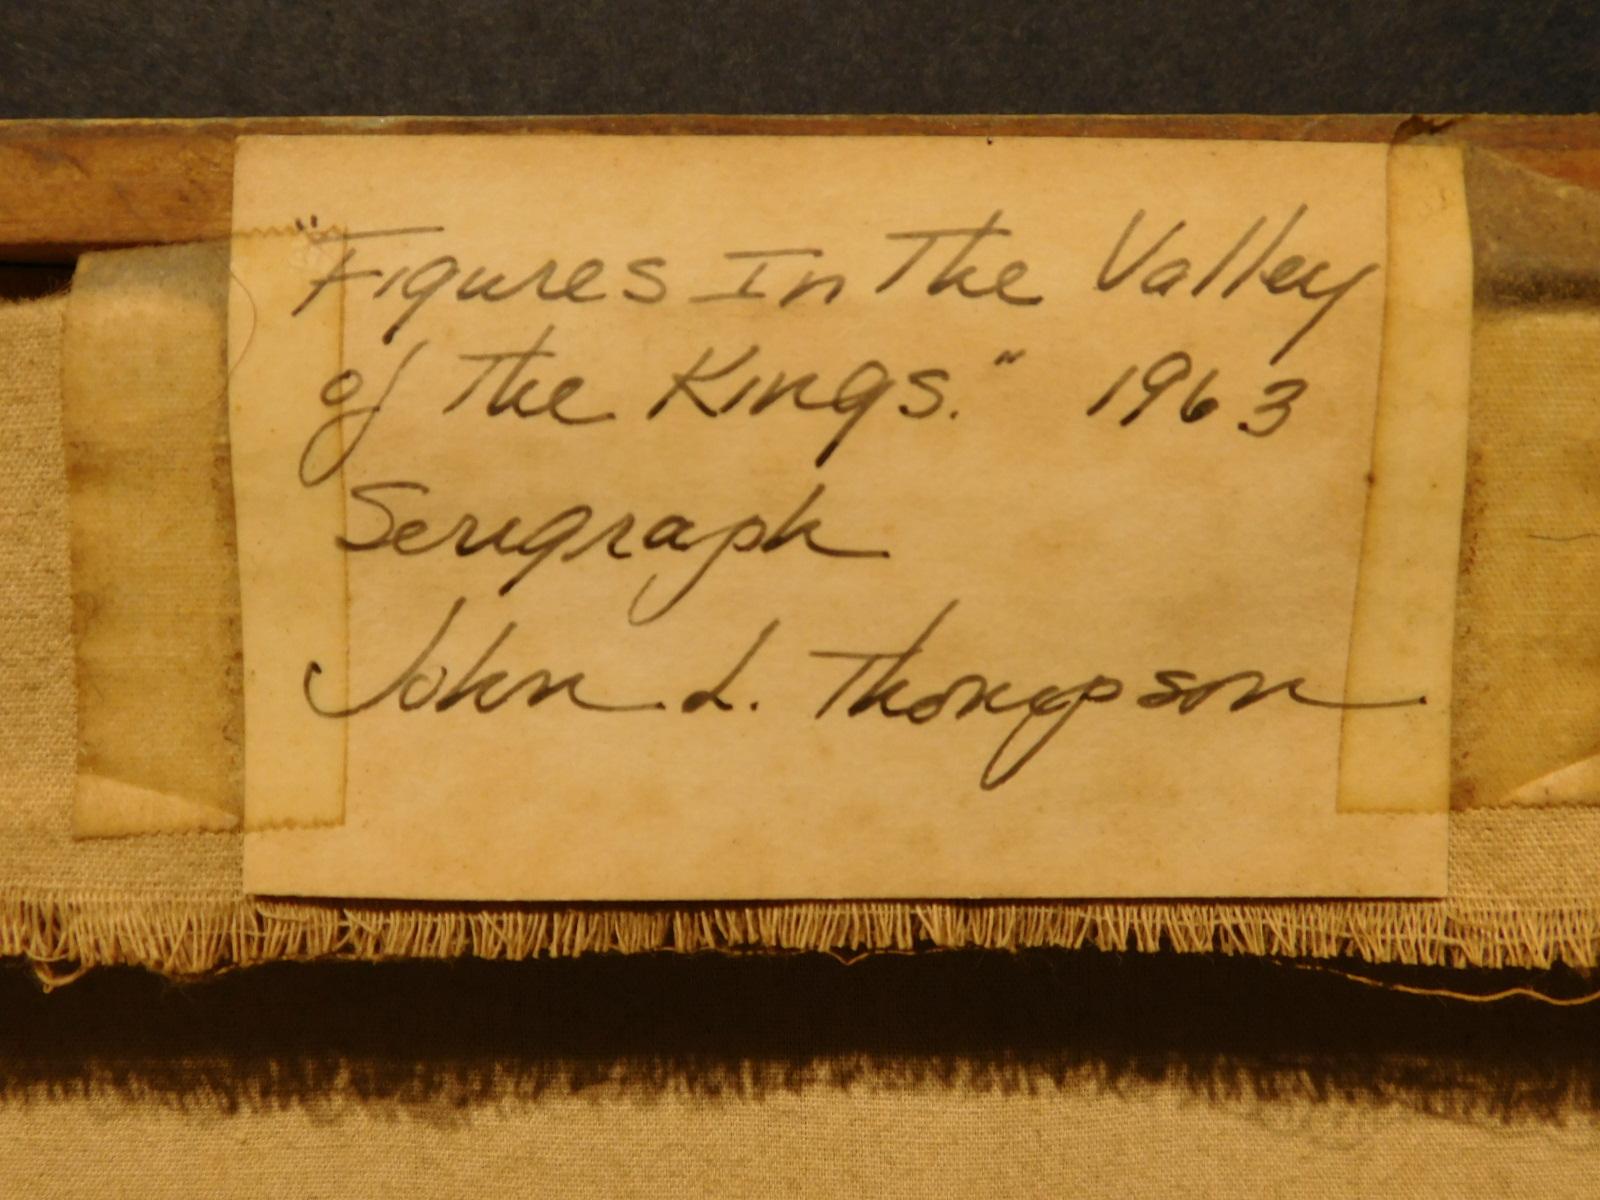 "Figures In The Valley
of The Kings." 1963
Serigraph
John L. Thompson